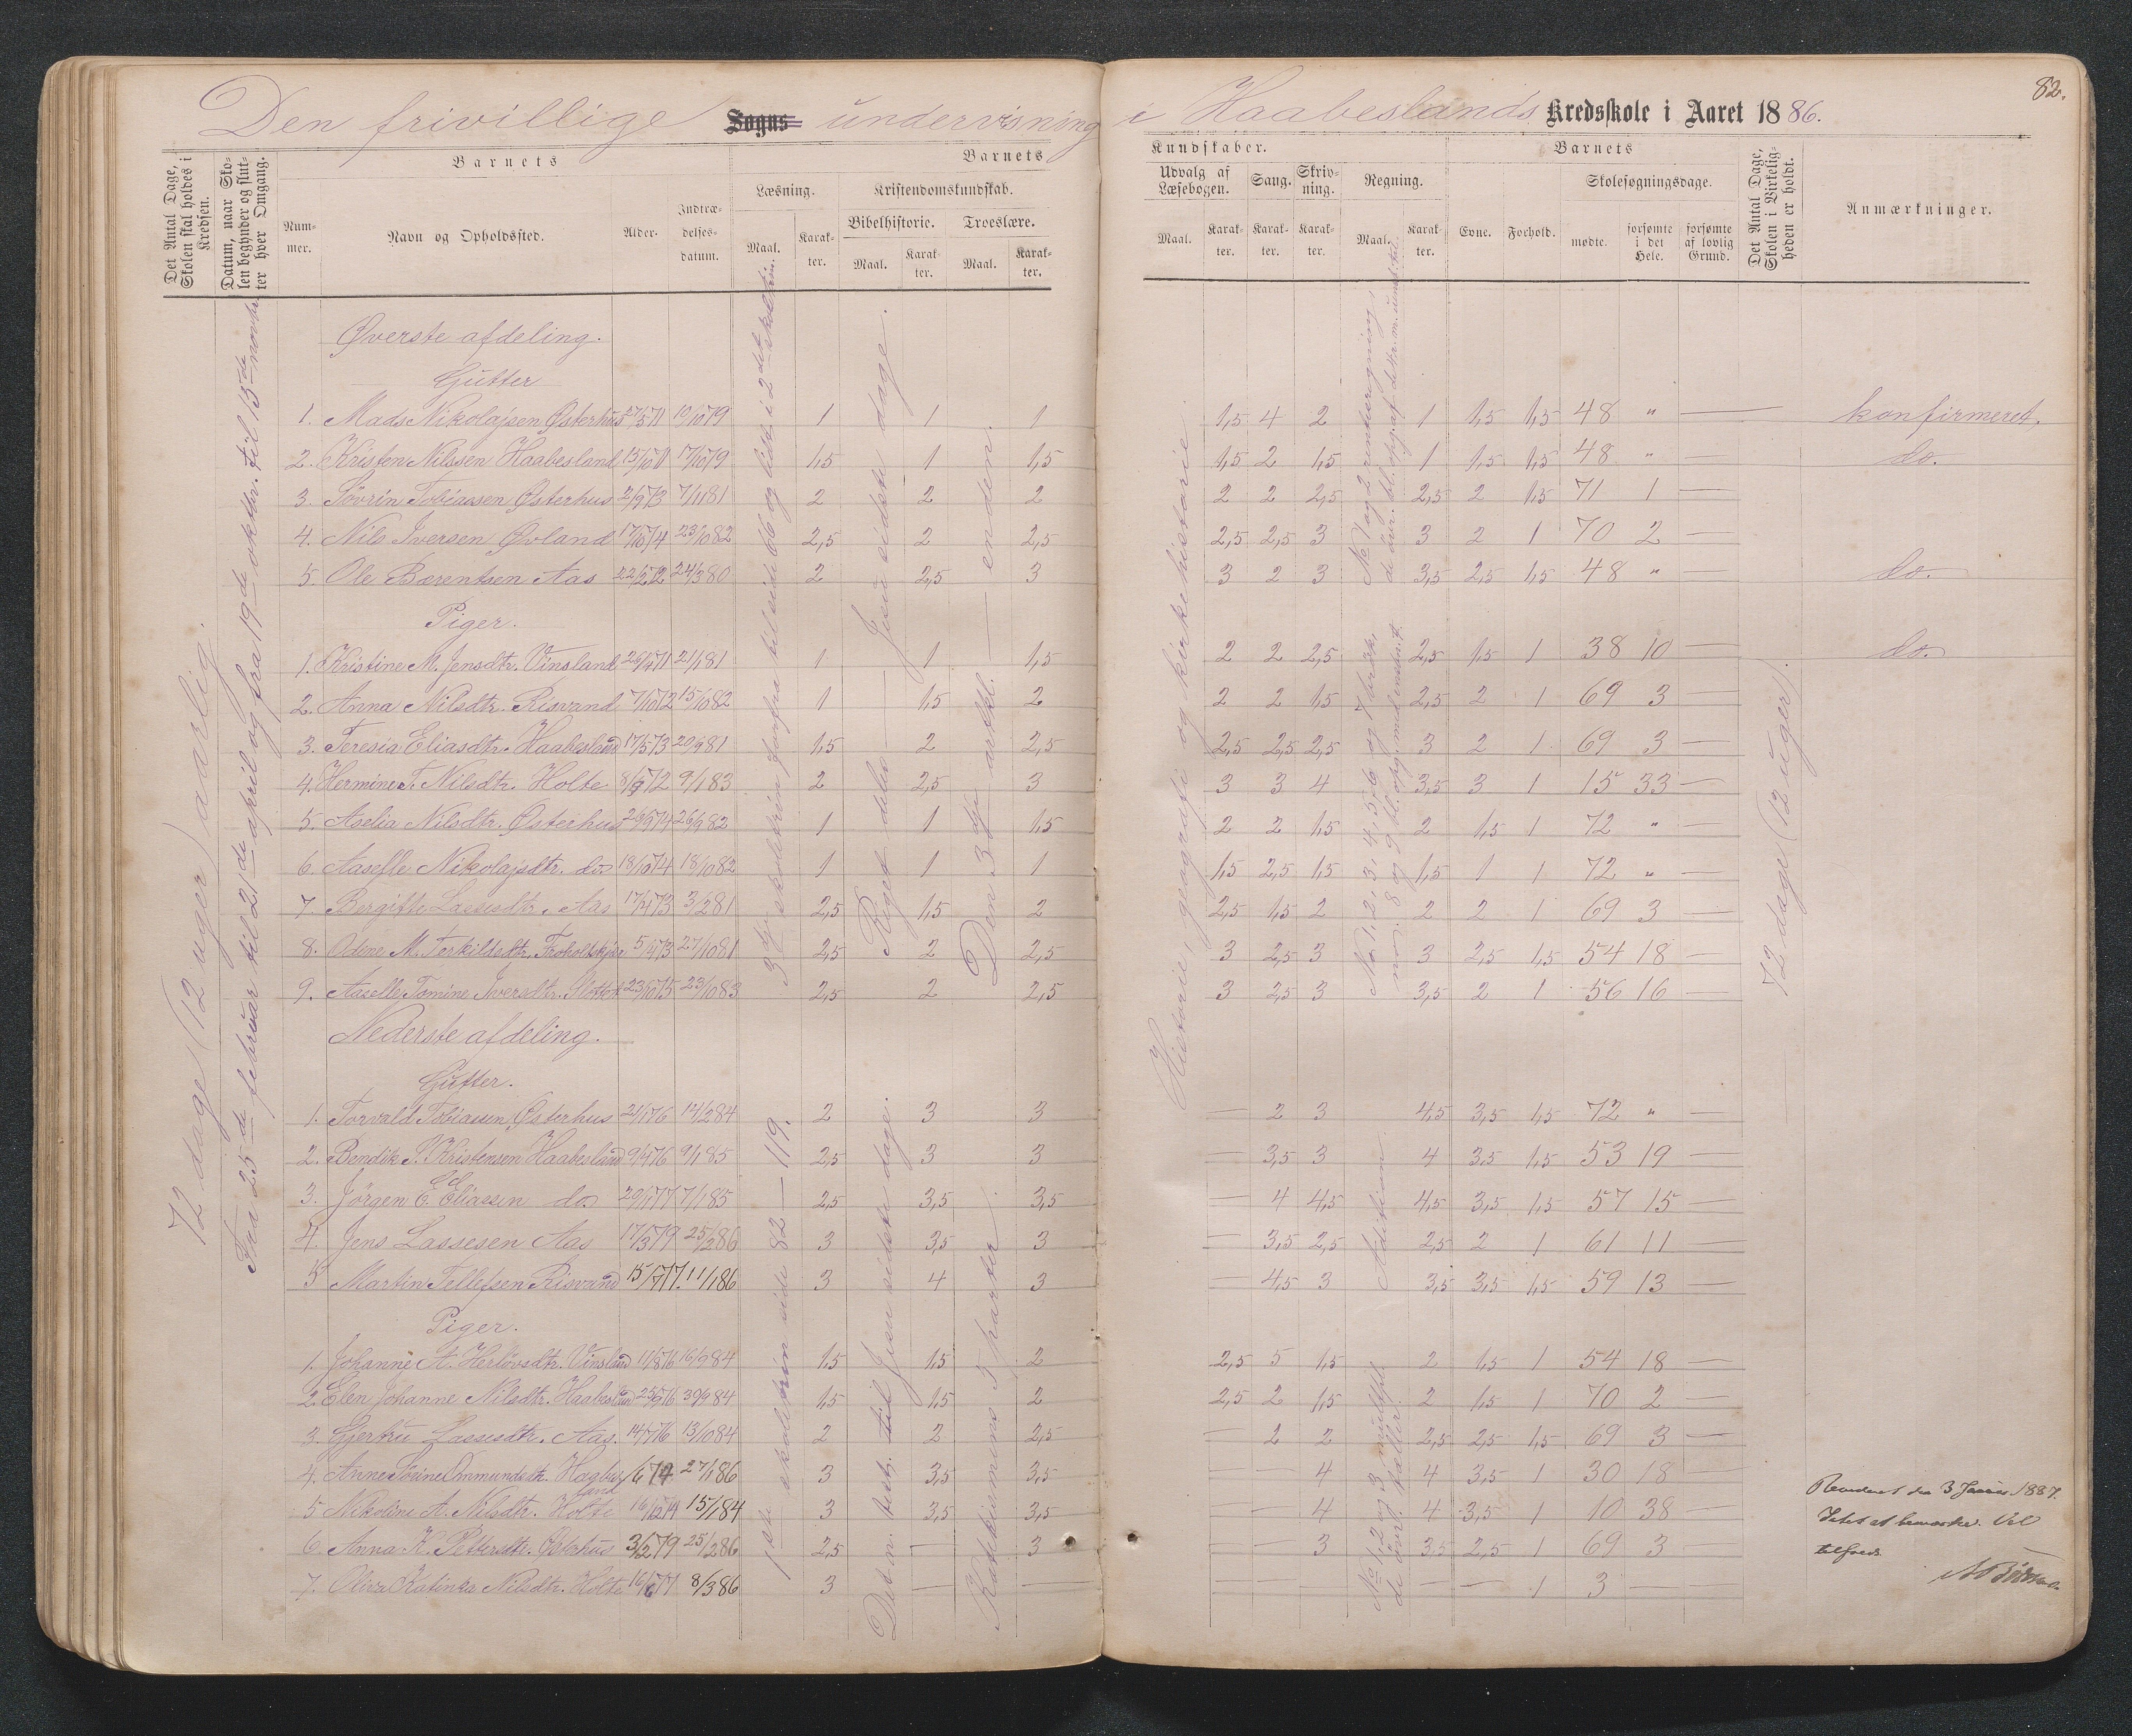 82.
Den frivillige Sogns undervisning i Haabeslands Kredsskole i Aaret 1886.
Det Antal Dage, Skolen skal holdes i Kredsen.
Datum, naar Skolen begynder og slutter hver Omgang.
Nummer.
Barnets
Navn og Opholdssted.
Alder.
Indtrædelsesdatum.
Barnets
Læsning.
Maal.
Karakter.
Kristendomskundskab.
Bibelhistorie.
Maal.
Karakter.
Troeslære.
Maal.
Karakter.
Kundskaber.
Udvalg af Læsebogen.
Maal.
Karakter.
Sang.
Karakter.
Skrivning.
Karakter.
Regning.
Maal.
Karakter.
Barnets
Evne.
Forhold.
Skolesøgningsdage.
mødte.
forsømte i det Hele.
forsømte af lovlig Grund.
Det Antal Dage, Skolen i Virkeligheden er holdt.
Anmærkninger.
72 dage (12 uger) aarlig.
Fra 25de februar til 21de april og fra 19de oktbr. til 13de novbr.
3dje skoletrin forfra til side 66 og lidt i 2det skoletrin.
Riget deles – Jesu sidste dage.
Den 3dje artkl. – enden.
Historie, geografi og kirkehistorie
No 1 og 2 rentheregning,
72 dage (12 uger).
Øverste afdeling.
Gutter
1. Mads Nikolajsen Østerhus 27/5 71 10/10 79 1 1 1 1,5 4 2 1 1,5 1,5 48 " — konfirmeret.
2. Kristen Nilssen Haabesland 15/10 71 7/10 79 1,5 1 1,5 1,5 2 1,5 1 1,5 1,5 48 " — do.
3. Sövrin Tobiassen Østerhus 2/9 73 7/11 81 2 2 2 2 2 2,5 2,5 2 1,5 71 1 —
4. Nils Iversen Øvland 17/10 74 23/10 82 2,5 2 2,5 2,5 2,5 3 3 2 1 70 2 —
5. Ole Bærentsen Aas 22/2 72 24/3 80 2 2,5 3 3 2 3 3,5 2,5 1,5 48 " — do.
Piger.
1. Kristine M. Jensdtr. Vinsland 26/4 71 21/1 81 1 1 1,5 2 2 2,5 2,5 1,5 1 38 10 — do.
2. Anna Nilsdtr. Risvand 7/10 72 15/10 82 1 1,5 2 2 2 1,5 2,5 2 1 69 3 —
3. Teresia Eliasdtr. Haabesland 17/5 73 20/9 81 1,5 2 2,5 2,5 2,5 2,5 3 2 1 69 3 —
4. Hermine T. Nilsdtr. Holte 8/9 72 9/1 83 2 2,5 3 3 3 4 3,5 3 1 15 33 —
5. Aselia Nilsdtr. Østerhus 26/9 74 26/9 82 1 1 1,5 2 2 1,5 2 1,5 1 72 " —
6. Aaselle Nikolajsdtr. do. 18/10 74 18/10 82 1 1 1 1,5 2,5 1,5 1,5 1 1 72 " —
7. Bergitte Lassesdtr. Aas 17/4 73 3/2 81 2,5 1,5 2 2,5 1,5 2 2 2 1 69 3 —
8. Odine M. Terkildsdtr. 5/4 73 27/10 81 2,5 2 2,5 3 2,5 3 3 2,5 1,5 54 18 —
9. Aaselle Tomine Iversdtr. 23/10 75 23/10 83 2,5 2 2,5 3 2,5 3 3,5 2 1 56 16 —
Nederste afdeling.
Gutter.
1ste skoletrin side 82 – 119.
Det n. test. til Jesu sidste dage.
Katekismens 5 parter.
Adition
No 1, 2 og 3 multpl.
1. Torvald Tobiassen Østerhus 21/1 76 14/2 84 2 3 3 — 2 3 4,5 3,5 1,5 72 " —
2. Bendik S. Kristensen Haabesland 9/4 76 9/1 85 2,5 3 3 — 3,5 3 4 3,5 1,5 53 19 —
3. Jörgen E. Eliassen do. 20/1 77 7/1 85 2,5 3,5 3,5 — 4 4,5 4,5 3,5 1,5 57 15 —
4. Jens Lassesen Aas 17/3 79 25/2 86 3 3,5 3 — 3,5 2,5 2,5 2 1 61 11 —
5 Martin Tellefsen Risvand 15/7 77. 11/1 86 3 4 3 — 4,5 3 3,5 3,5 1,5 59 13 —
Piger.
1. Johanne A. Herlövsdtr. Vinsland 11/8 76 16/9 84 1,5 1,5 2 2,5 5 1,5 2 1,5 1 54 18 —
2. Elen Johanne Nilsdtr. Haabesland 25/9 76 30/9 84 1,5 1,5 2 2,5 2 1,5 2 1,5 1 70 2 —
3. Gjertru Lassesdtr. Aas. 14/7 76 13/10 84 2 2 2,5 — 2 2 2,5 2,5 1,5 69 3 —
4. Anne Sörine Ommundsdtr. Haabesland 1/6 74 27/1 86 3 3,5 3,5 — — 4 4 3,5 1 30 18 —
5 Nikoline A. Nilsdtr. Holte 16/12 74 15/1 84 3 3,5 3,5 — — 4 4 3,5 1 10 38 —
6. Anna K. Pettersdtr. Østerhus 3/2 79 25/2 86 2,5 — 3 — — 3 3,5 2,5 1 69 3 —
7. Oliva Katinka Nilsdtr. Holte 16/6 77 8/3 86 3 — — — — — — — 1 3 —
Revideret den 3 Januar 1887.
Intet at bemærke. Vel
tilfreds